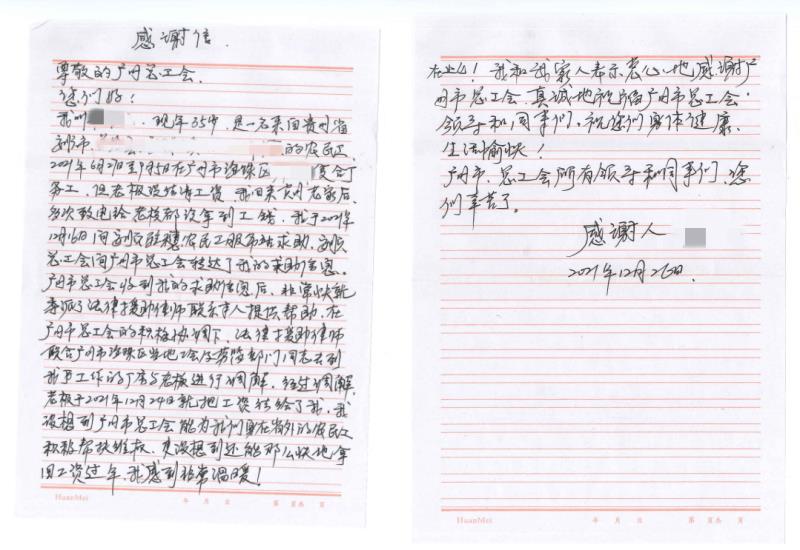 感谢信.
尊敬的广州总工会.
您们好!
我叫 现年35岁, 是一名来自贵州省
安顺市 的农民工,
2021年6月27日至9月5日在广州市海珠区 复合厂
务工, 但老板没结清工资, 我回来贵州老家后,
多次致电给老板都没拿到工钱, 我于2021年
12月16日向安顺驻穗农民工服务站求助, 安顺
总工会向广州市总工会转达了我的求助信息.
广州市总工会收到我的求助信息后, 非常快就
委派了法律援助律师联系本人提供帮助, 在
广州市总工会的积极协调下, 法律援助律师
联合广州市海珠区当地工会及劳动部门同志去到
我工作的厂房与老板进行调解, 经过调解,
老板于2021年12月24日就把工资结给了我, 我
没想到广州市总工会能为我们身在省外的农民工
积极帮扶维权, 更没想到还能那么快地拿
回工资过年, 我感到非常温暖!
HuanMei 年 月 日 第 页共 页
在此! 我和我家人表示衷心地感谢广
州市总工会, 真诚地祝福广州市总工会
领导和同事们, 祝您们身体健康,
生活愉快!
广州市总工会所有领导和同事们, 您
们辛苦了.
感谢人
2021年12月26日.
HuanMei 年 月 日 第 页共 页